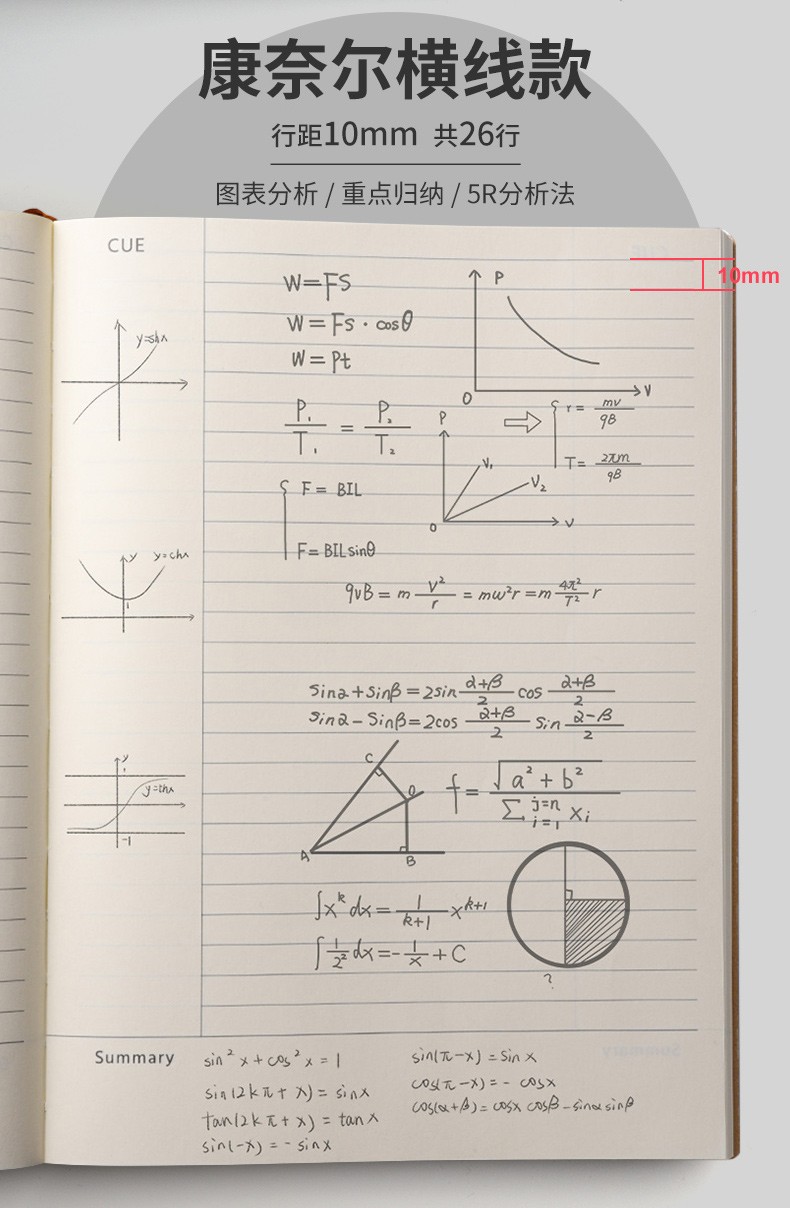 康奈尔横线款
行距10mm 共26行
图表分析 / 重点归纳 / 5R分析法
CUE
10mm
W=FS
W=Fs·cosθ
W=Pt
P
O
V
y=shx
P₁/T₁ = P₂/T₂
P
V₁
V₂
O
V
r= mv/qB
T= 2πm/qB
F= BIL
F=BILsinθ
y
y=chx
1
qvB= m V²/r = mω²r =m 4π²/T² r
sin2+sinβ=2sin 2+β/2 cos 2+β/2
sin2-sinβ=2cos 2+β/2 sin 2-β/2
y
1
y=thx
-1
C
O
A
B
f= √a²+b² / ∑ j=n i=1 xi
∫x^k dx= 1/k+1 x^k+1
∫ 1/2² dx=- 1/x +C
?
Summary
sin²x+cos²x=1
sin(2kπ+x)=sinx
tan(2kπ+x)=tanx
sin(-x)=-sinx
sin(π-x)=sinx
cos(π-x)=-cosx
cos(α+β)=cosx cosβ-sinα sinβ